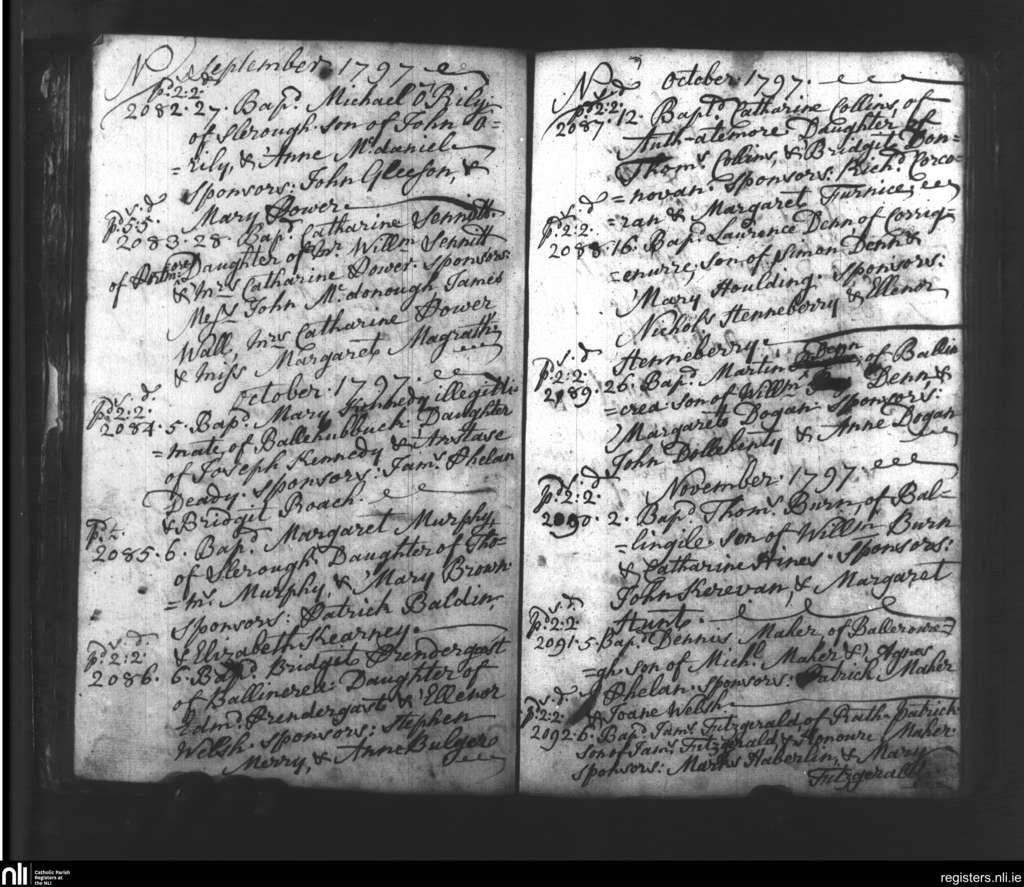 No September 1797
s. d
pd. 2:2.
2082. 27. Bapd. Michael O'Rily
of Slerough son of John O=
=rily, & Anne McDaniel
sponsors: John Gleeson, &
Mary Power
s. d
pd. 5:5.
2083. 28. Bapd. Catharine Sennitt
Daughter of Mr. Willm Sennitt
& Mrs Catharine Power. sponsors:
Messs John McDonough James
Wall, Mrs Catharine Power
& Miss Margaret Magrath
October 1797.
s. d.
pd. 2:2.
2084. 5. Bapd. Mary Kennedy illegitti=
=mate, of Ballehubbuck Daughter
of Joseph Kennedy & Anstase
Deady. sponsors: Jams. Phelan
& Bridgit Roach.
2085. 6. Bapd. Margaret Murphy
of Slerough Daughter of Tho=
=ms. Murphy, & Mary Brown
sponsors: Patrick Baldin,
& Elizabeth Kearney.
s. d.
pd. 2:2.
2086. 6. Bapd. Bridget Prendergast
of Ballinerea: Daughter of
Edmd. Prendergast & Ellenor
Welsh. sponsors: Stephen
Merry, & Anne Bulger
No October 1797.
s. d
pd. 2:2.
2087. 12. Bapd. Catharine Collins of
Auth-atemore Daughter of
Thoms. Collins, & Bridgit Don=
=novan. sponsors: Richd. Corco=
=ran & Margaret Furnice
s. d
pd. 2:2.
2088. 16. Bapd. Laurence Denn of Corrig=
=enurre; son of Simon Denn &
Mary Houlding. sponsors:
Nichols. Henneberry & Ellenor
Henneberry.
s. d
pd. 2:2.
2089. 26. Bapd. Martin Denn of Ballin
=crea son of Willm Denn, &
Margaret Dogan. sponsors:
John Dollehenty & Anne Dogan
November 1797.
s. d
pd. 2:2.
2090. 2. Bapd Thoms. Burn, of Bal=
=lingile son of Willm Burn
& Catharine Hines. sponsors:
John Kerevan, & Margaret
Hunt.
s. d
pd. 2:2.
2091. 5. Bapd. Dennis Maher of Balleronree=
=gh son of Michl. Maher & Agnes
Phelan. sponsors: Patrick Maher
& Joane Welsh.
s. d
pd. 2:2.
2092. 6. Bapd. Jams. Fitzgerald of Rath-Patrick
son of Jams. Fitzgerald & Honoure Maher
sponsors: Marks Haberlin, & Mary
Fitzgerald.
nli
Catholic Parish
Registers at
the NLI
registers.nli.ie